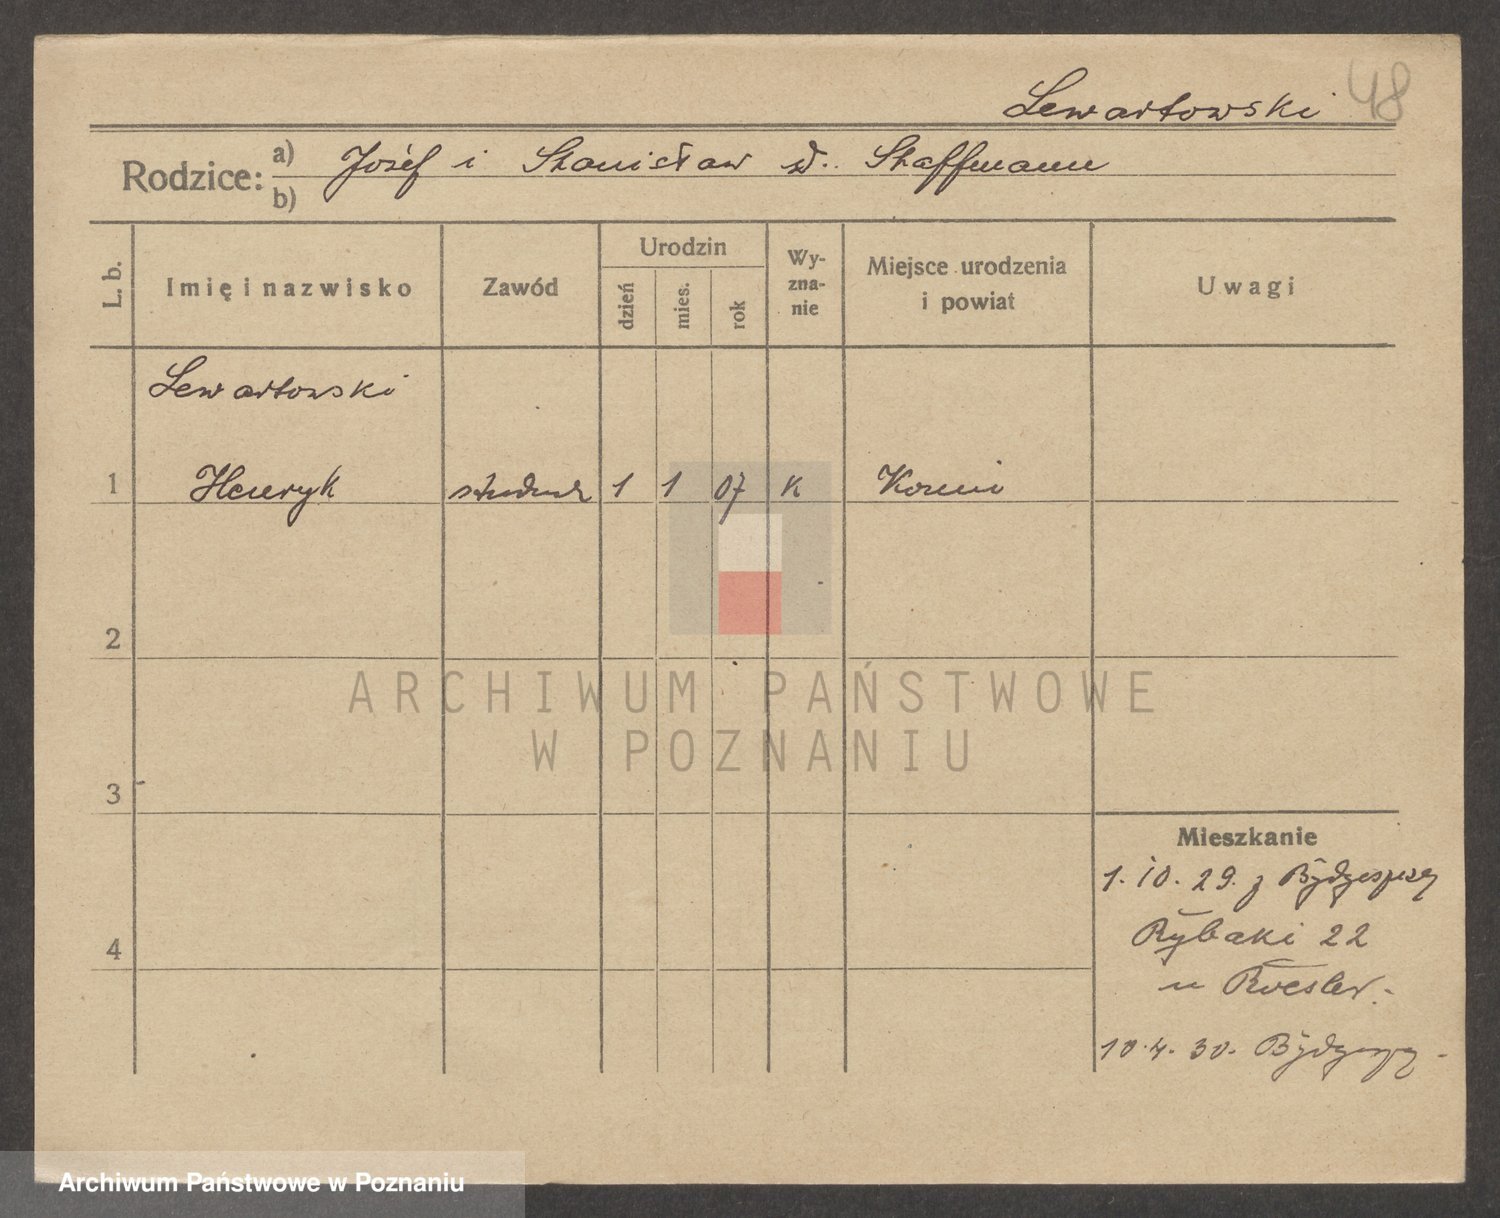 Lewartowski 48
Rodzice: a) Józef i Stanisław z d. Staffmann
b)
L. b.
Imię i nazwisko
Zawód
Urodzin
dzień
mies.
rok
Wy-
zna-
nie
Miejsce urodzenia
i powiat
Uwagi
Lewartowski
1 Henryk student 1 1 07 K
2
ARCHIWUM PAŃSTWOWE
W POZNANIU
3
Mieszkanie
1. 10. 29. z Bydgoszczy
Rybaki 22
4
u Roesler.
10. 4. 30. Bydgoszcz
Archiwum Państwowe w Poznaniu